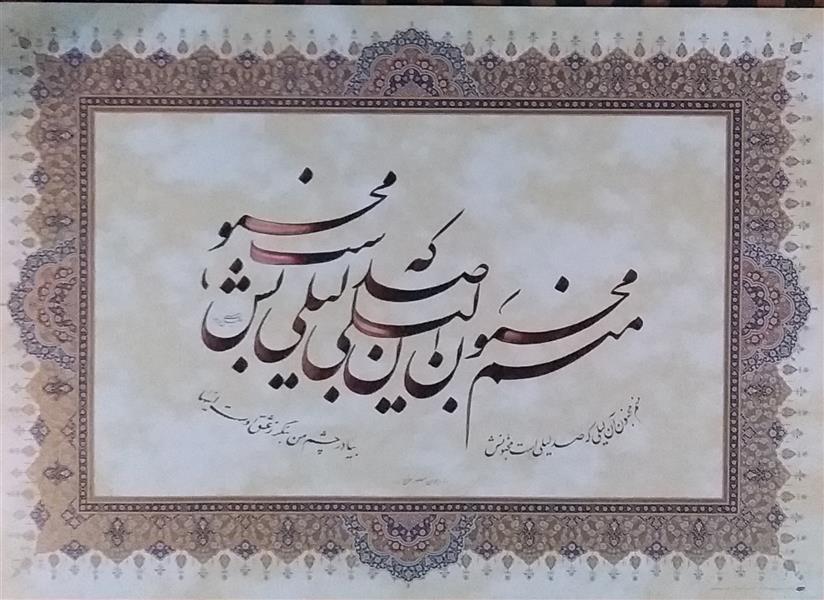 منم مجنون آن لیلی که صد لیلی است مجنونش
منم مجنون آن لیلی که صد لیلی است مجنونش
بیا در چشم من بنگر ز عشق اوست اینها